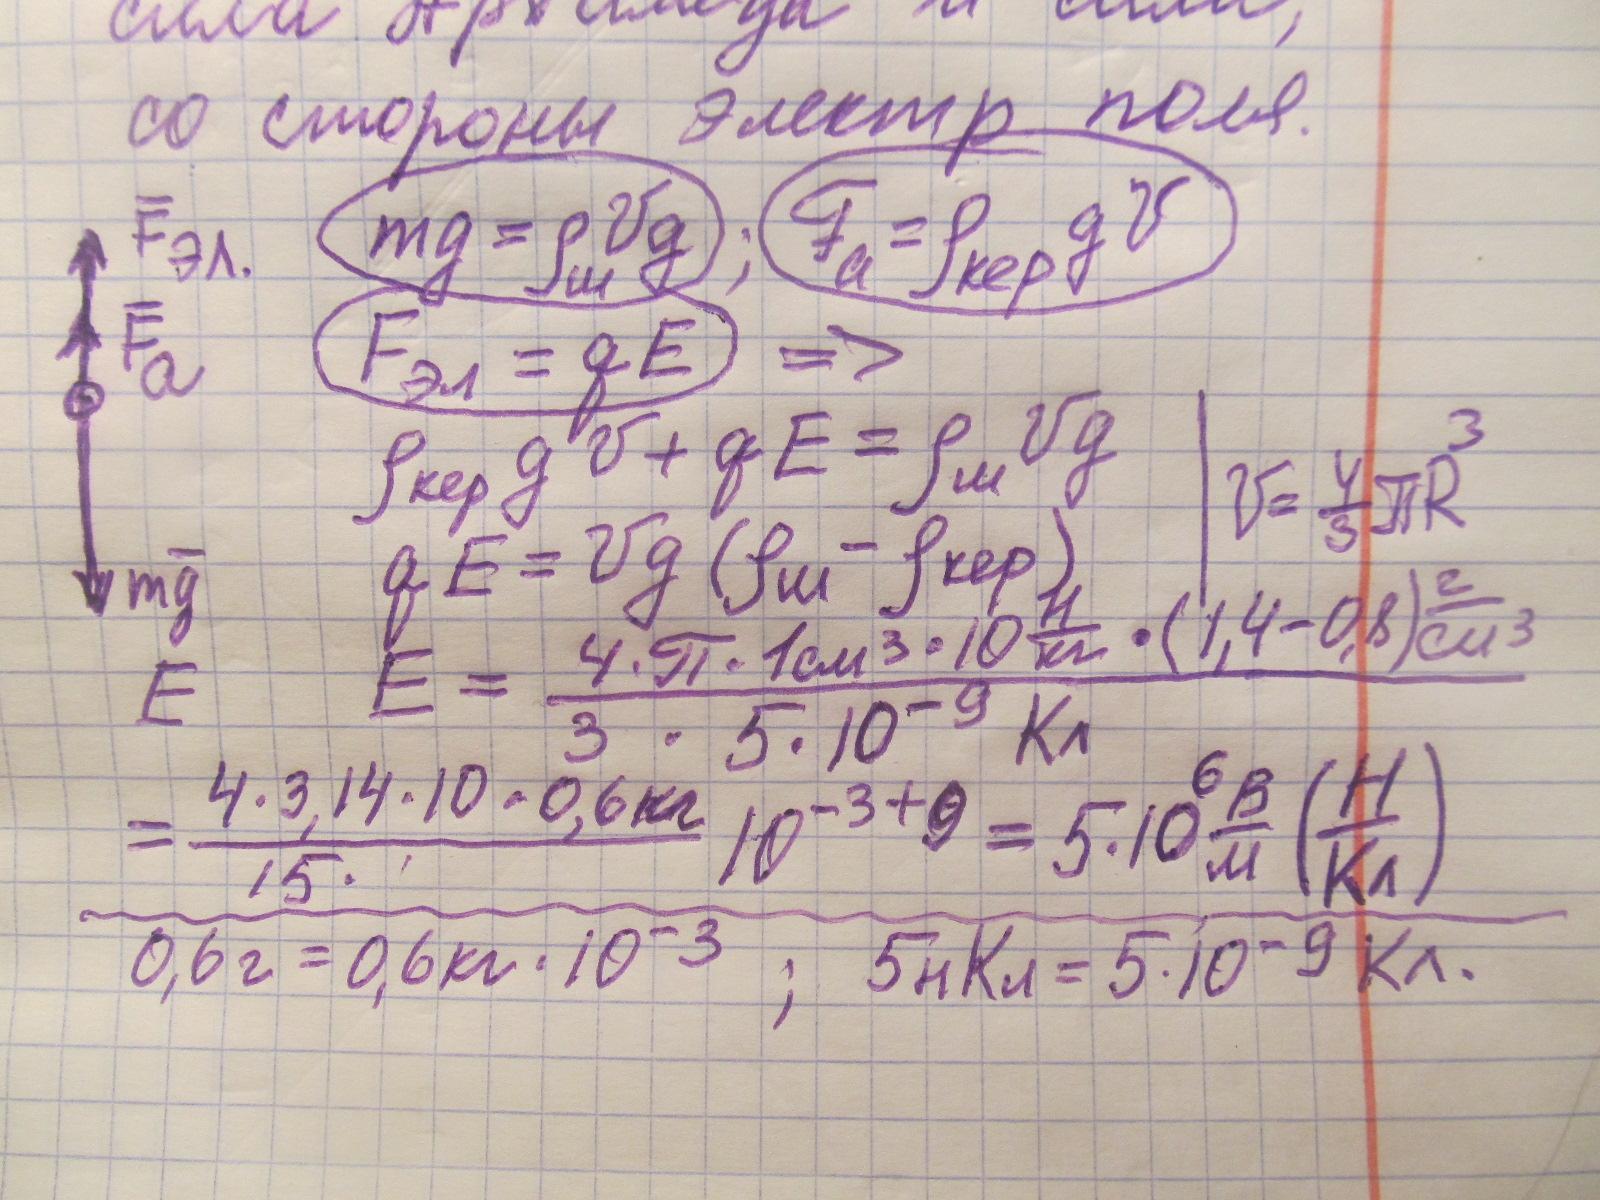 сила Архимеда и сила,
со стороны электр поля.
F̅эл. mg = ρш Vg ; Fа = ρкер g V
F̅а Fэл = qE =>
ρкер g V + qE = ρш Vg | V = 4/3 πR³
mg̅ qE = Vg (ρш - ρкер)
E E = 4·π·1см³·10 Н/кг·(1,4-0,8) г/см³ / 3 · 5·10⁻⁹ Кл
= 4·3,14·10·0,6кг / 15· 10⁻³⁺⁹ = 5·10⁶ В/м (Н/Кл)
0,6г = 0,6кг·10⁻³ ; 5нКл = 5·10⁻⁹ Кл.